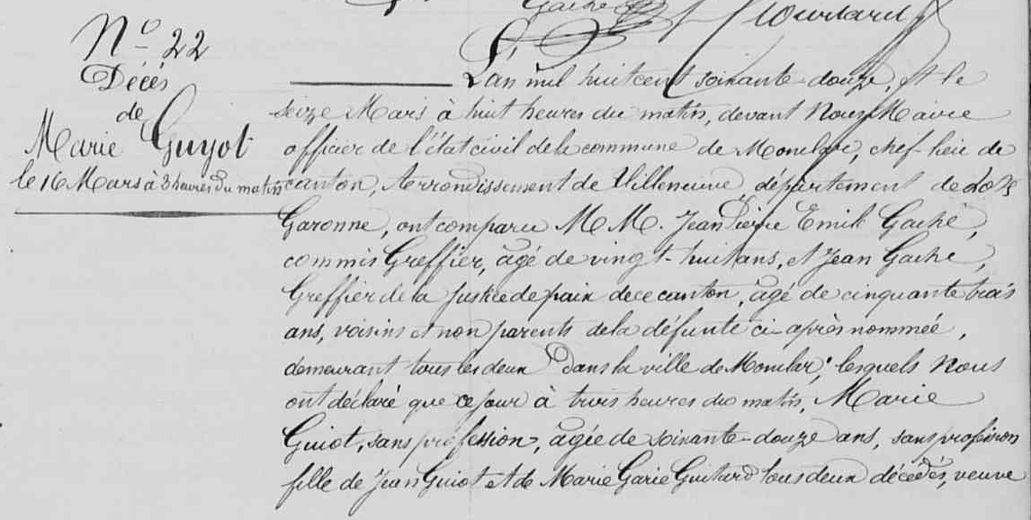 Gache
N° 22
Décès
de
Marie Guyot
le 16 Mars à 3 heures du matin
L'an mil huit cent soixante douze, et le
seize Mars à huit heures du matin, devant Nous Maire
officier de l'état civil de la commune de Monclar, chef-lieu de
canton, Arrondissement de Villeneuve, département de Lot &
Garonne, ont comparu M.M. Jean Pierre Emile Gache,
commis Greffier, âgé de vingt-huit ans, et Jean Gache,
Greffier de la justice de paix de ce canton, âgé de cinquante trois
ans, voisins et non parents de la défunte ci-après nommée,
demeurant tous les deux dans la ville de Monclar, lesquels Nous
ont déclaré que ce jour à trois heures du matin, Marie
Guiot, sans profession, âgée de soixante-douze ans, sans profession
fille de Jean Guiot et de Marie Garie Guitard tous deux décédés, veuve